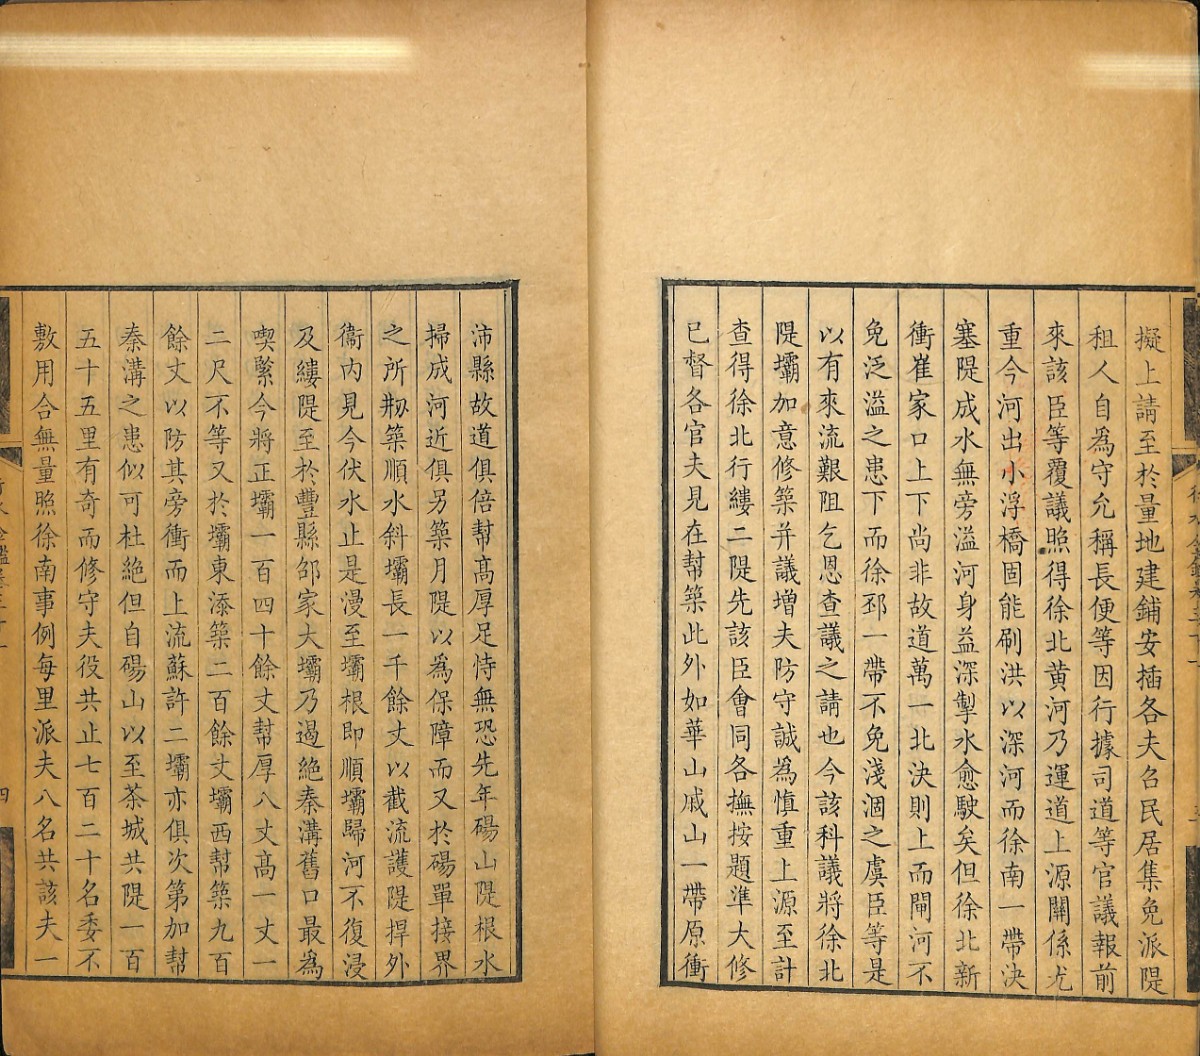 擬上請至於量地建鋪安插各夫召民居集免派隄
租人自為守允稱長便等因行據司道等官議報前
來該臣等覆議照得徐北黄河乃運道上源關係尤
重今河出小浮橋固能刷洪以深河而徐南一帶決
塞隄成水無旁溢河身益深掣水愈駛矣但徐北新
衝崔家口上下尚非故道萬一北決則上而閘河不
免泛溢之患下而徐邳一帶不免淺涸之虞臣等是
以有來流艱阻乞恩查議之請也今該科議將徐北
隄壩加意修築并議增夫防守誠為慎重上源至計
查得徐北行縷二隄先該臣會同各撫按題準大修
已督各官夫見在幫築此外如華山戚山一帶原衝
沛縣故道俱倍幫高厚足恃無恐先年碭山隄根水
掃成河近俱另築月隄以為保障而又於碭單接界
之所刱築順水斜壩長一千餘丈以截流護隄捍外
衞内見今伏水止是漫至壩根即順壩歸河不復浸
及縷隄至於豐縣邵家大壩乃遏絶秦溝舊口最為
喫緊今將正壩一百四十餘丈幫厚八丈高一丈一
二尺不等又於壩東添築二百餘丈壩西幫築九百
餘丈以防其旁衝而上流蘇許二壩亦俱次第加幫
秦溝之患似可杜絶但自碭山以至茶城共隄一百
五十五里有奇而修守夫役共止七百二十名委不
敷用合無量照徐南事例每里派夫八名共該夫一
四